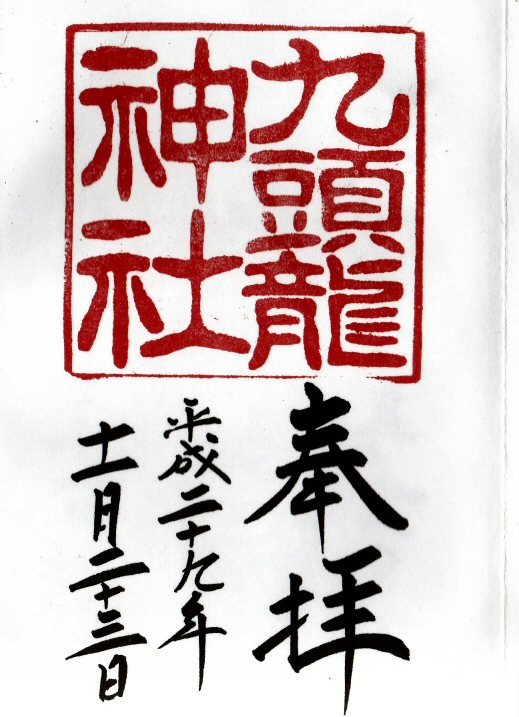 九頭龍
神社
奉拝
平成二十九年
十一月二十三日